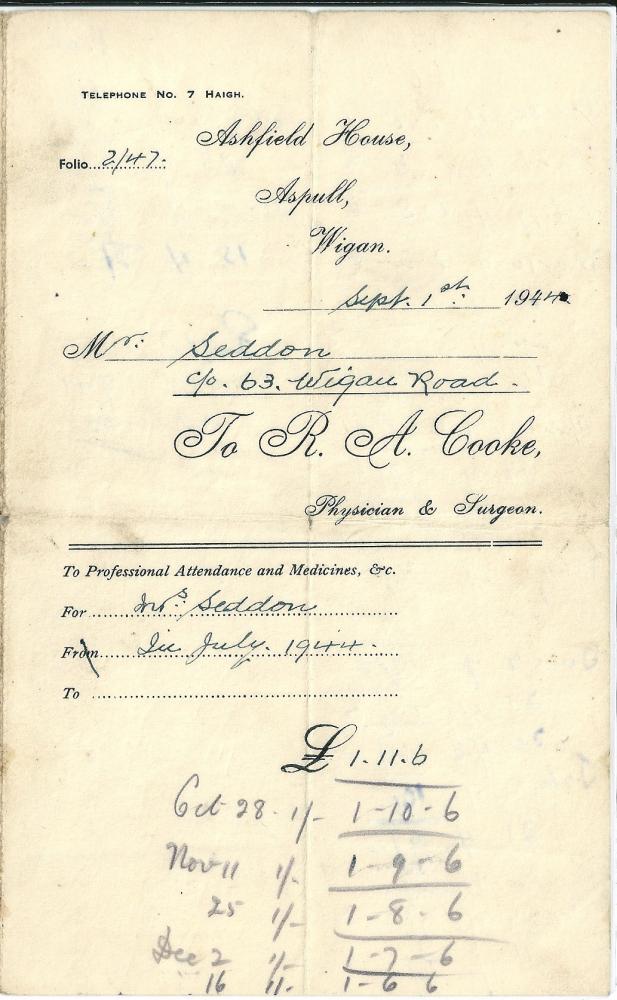 TELEPHONE NO. 7 HAIGH.
Ashfield House,
Folio 2/47.
Aspull,
Wigan.
Sept. 1st. 1944
Mr. Seddon
c/o. 63. Wigan Road.
To R. A. Cooke,
Physician & Surgeon.
To Professional Attendance and Medicines, &c.
For Mrs. Seddon
From In July. 1944.
To
£ 1.11.6
Oct 28. 1/- 1-10-6
Nov 11 1/- 1-9-6
25 1/- 1-8-6
Dec 2 1/- 1-7-6
16 1/- 1-6 6